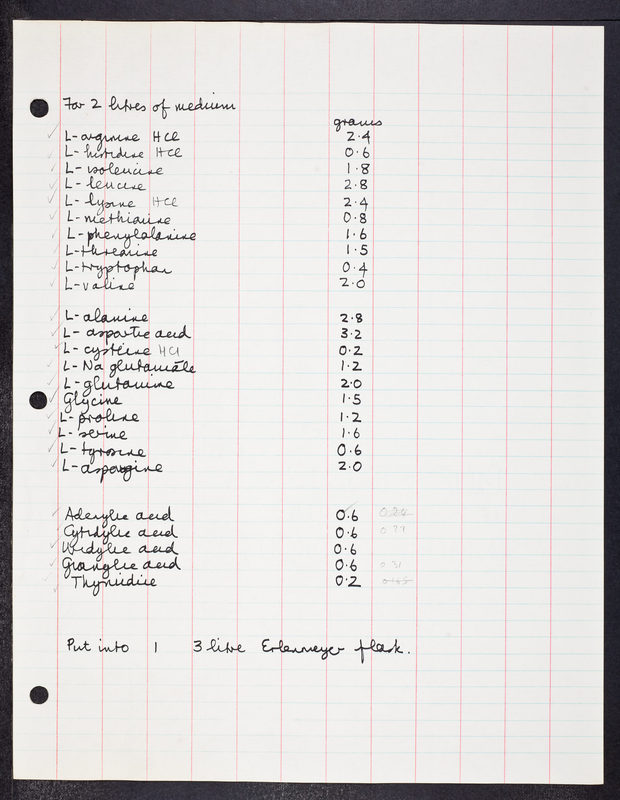 For 2 litres of medium
grams
L-arginine HCl 2.4
L-histidine HCl 0.6
L-isoleucine 1.8
L-leucine 2.8
L-lysine HCl 2.4
L-methionine 0.8
L-phenylalanine 1.6
L-threonine 1.5
L-tryptophan 0.4
L-valine 2.0
L-alanine 2.8
L-aspartic acid 3.2
L-cysteine HCl 0.2
L-Na glutamate 1.2
L-glutamine 2.0
Glycine 1.5
L-proline 1.2
L-serine 1.6
L-tyrosine 0.6
L-aspargine 2.0
Adenylic acid 0.6
Cytidylic acid 0.6
Uridylic acid 0.6
Guanylic acid 0.6 0.31
Thymidine 0.2
Put into 1 3 litre Erlenmeyer flask.